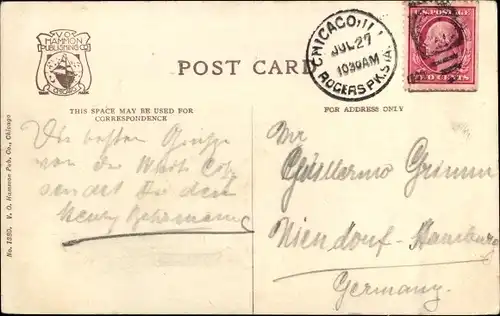 V.O.
HAMMON
PUBLISHING CO
CHICAGO
POST CARD
CHICAGO, ILL.
JUL 27
1030AM
ROGERS PK. STA.
U.S. POSTAGE
TWO CENTS
THIS SPACE MAY BE USED FOR
CORRESPONDENCE
FOR ADDRESS ONLY
Die besten Grüsse
von der White City
sendet Dir dein
Henry
Mr
Guillermo Grimm
Niendorf-Hamburg
Germany.
No. 1350. V. O. Hammon Pub. Co., Chicago